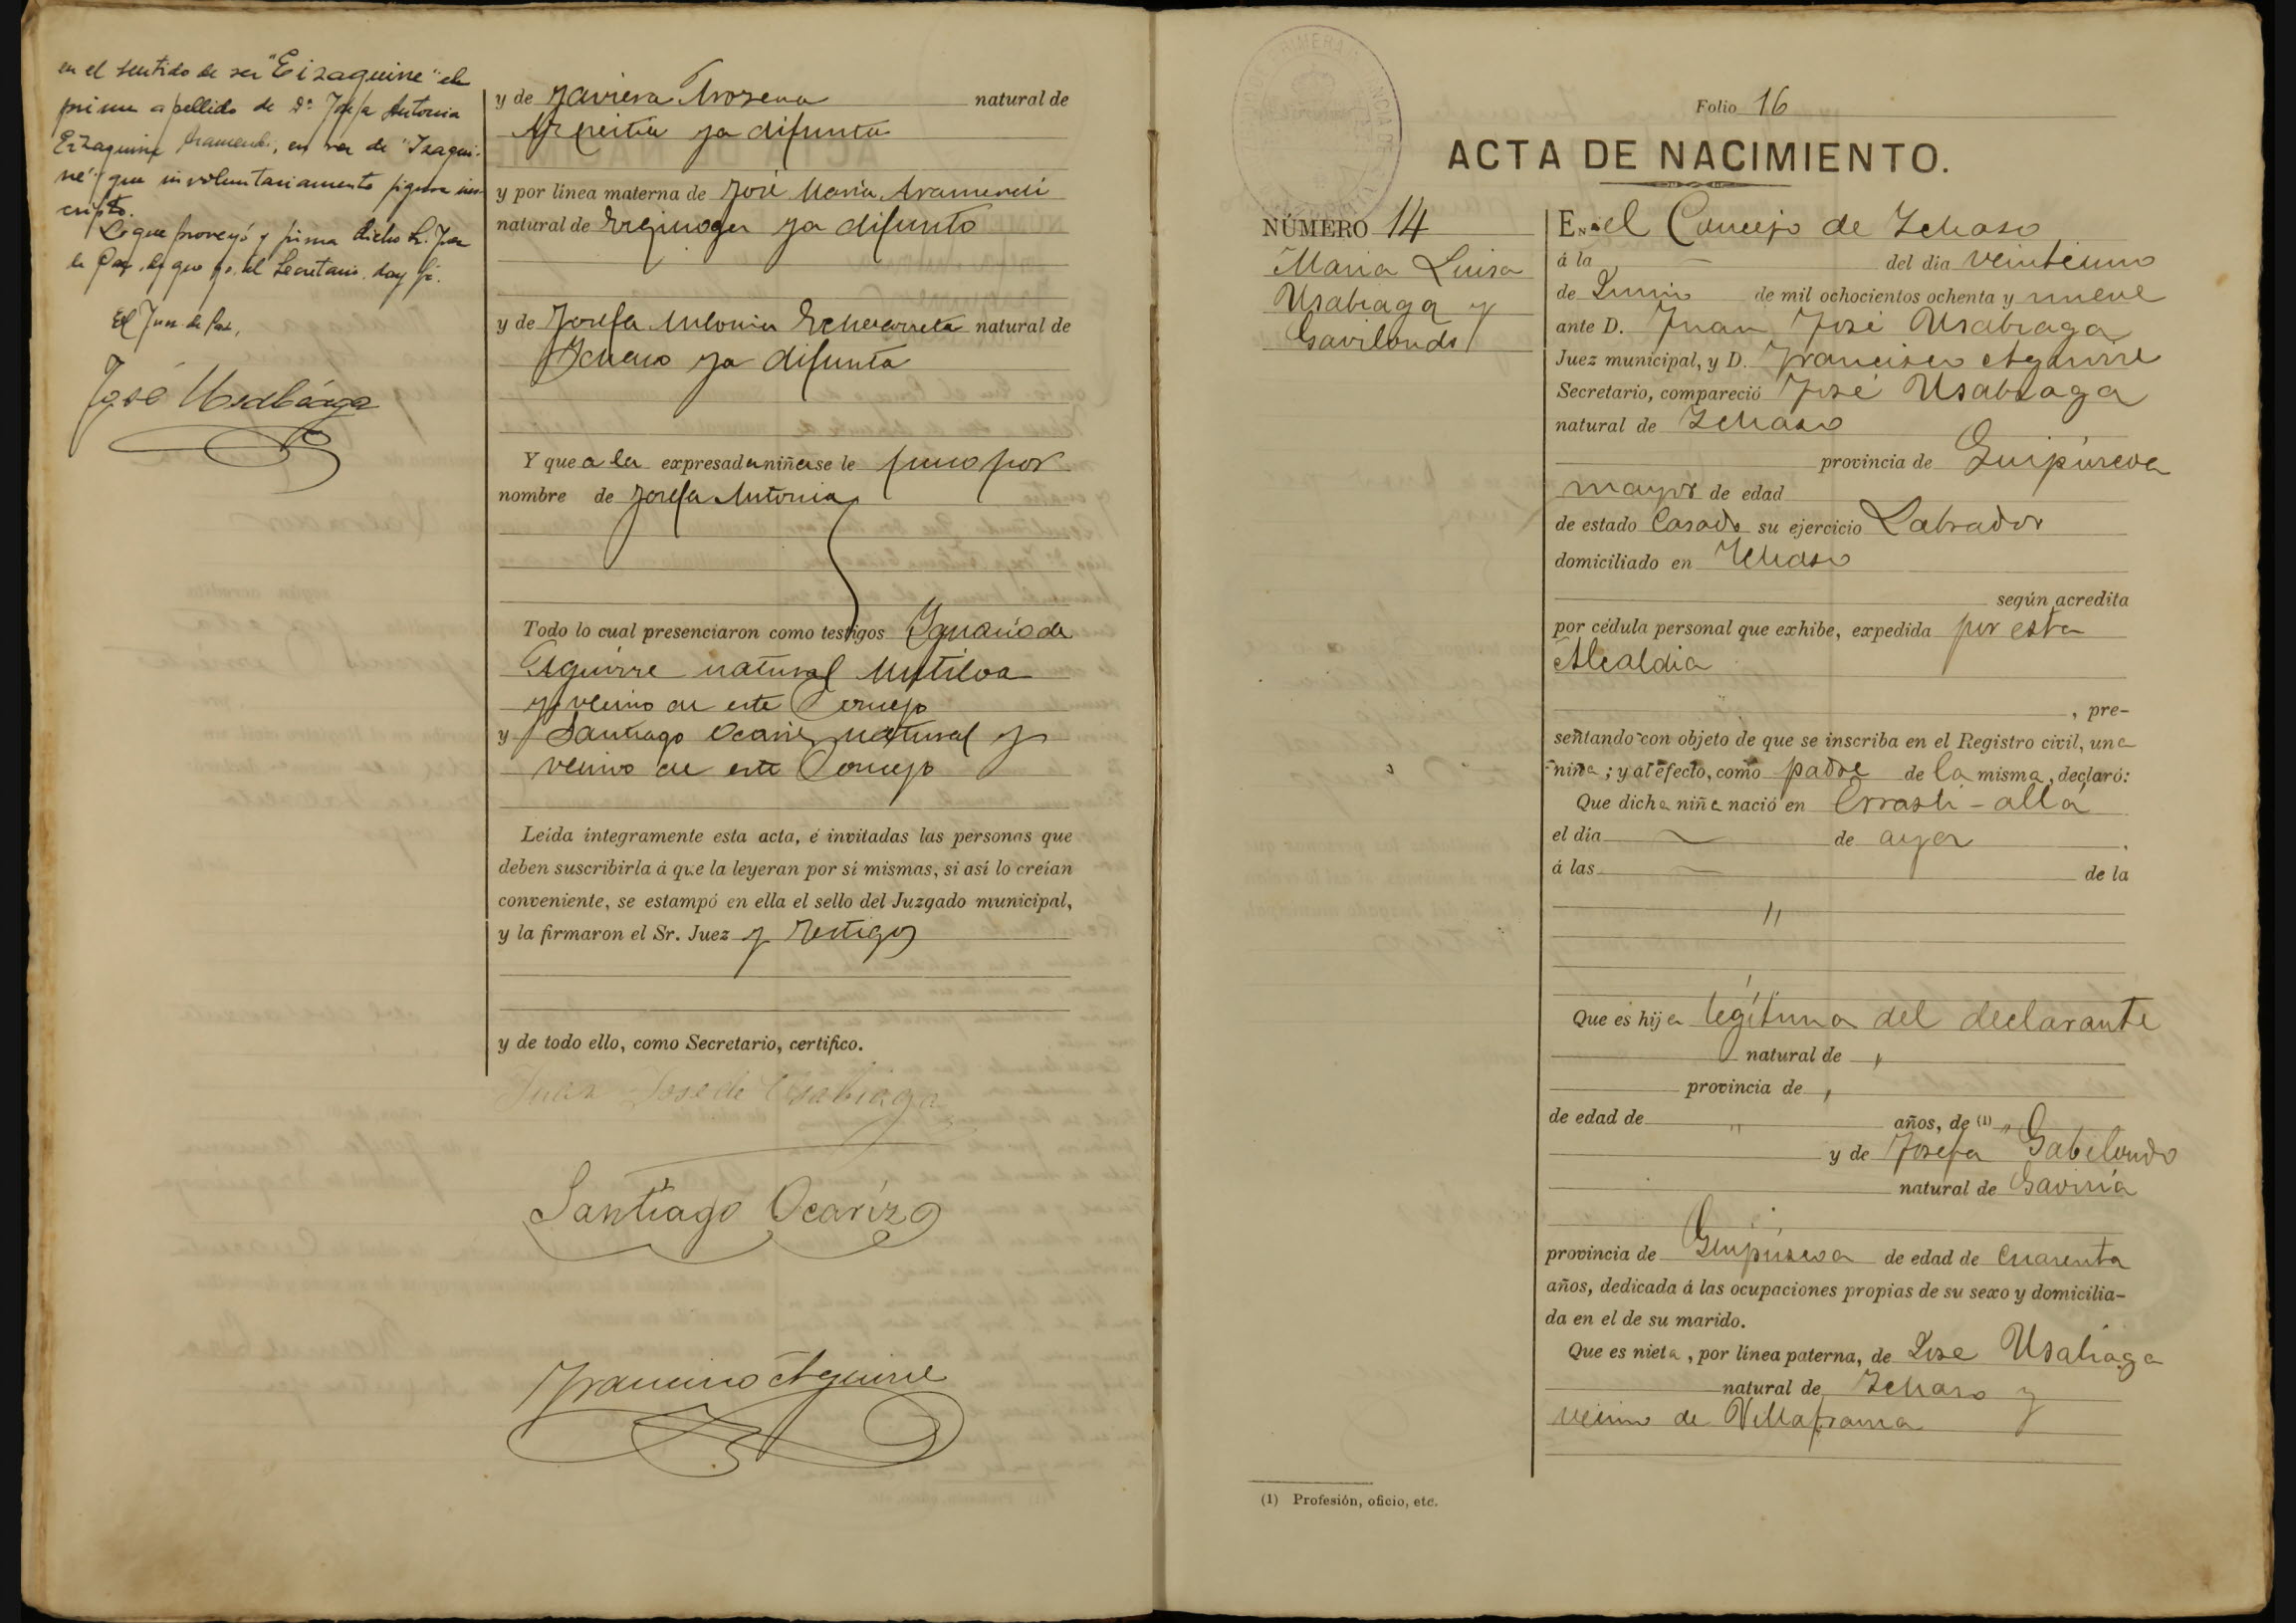 en el sentido de ser "Eizaguirre" el
primer apellido de Dª Josefa Antonia
Eizaguirre Aramendi, en vez de "Izagui-
rre" que involuntariamente figura ins-
cripto.
Lo que proveyó y firma dicho Sr. Juez
de Paz, de que yo el Secretario doy fé.
El Juez de Paz,
José Usabiaga
y de Javiera natural de
Azpeitia ya difunta
y por línea materna de José María Aramendi
natural de ya difunto
y de Josefa Antonia Echevarreta natural de
ya difunta
Y que a la expresada niña se le puso por
nombre de Josefa Antonia
Todo lo cual presenciaron como testigos Ignacio de
Aguirre natural Mutiloa
y vecino de este Concejo
y Santiago Ocariz natural y
vecino de este Concejo
Leída íntegramente esta acta, é invitadas las personas que
deben suscribirla á que la leyeran por sí mismas, si así lo creían
conveniente, se estampó en ella el sello del Juzgado municipal,
y la firmaron el Sr. Juez y testigos
y de todo ello, como Secretario, certifico.
Juan José de Usabiaga
Santiago Ocariz
Francisco Aguirre
Folio 16
ACTA DE NACIMIENTO.
NÚMERO 14
Maria Luisa
Usabiaga y
Gavilondo
En el Concejo de Ichaso
á la del dia veintiuno
de Junio de mil ochocientos ochenta y nueve
ante D. Juan José Usabiaga
Juez municipal, y D. Francisco Aguirre
Secretario, compareció José Usabiaga
natural de Ichaso
provincia de Guipúzcoa
mayor de edad
de estado Casado su ejercicio Labrador
domiciliado en Ichaso
según acredita
por cédula personal que exhibe, expedida por esta
Alcaldia
, pre-
sentando con objeto de que se inscriba en el Registro civil, una
niña; y al efecto, como padre de la misma, declaró:
Que dicha niña nació en Errasti-alla
el día de ayer
á las de la
"
Que es hija legítima del declarante
natural de "
provincia de "
de edad de " años, de (1) "
y de Josefa Gabilondo
natural de Gaviria
provincia de Guipúzcoa de edad de Cuarenta
años, dedicada á las ocupaciones propias de su sexo y domicilia-
da en el de su marido.
Que es nieta, por línea paterna, de Jose Usabiaga
natural de Ichaso y
vecino de Villafranca
(1) Profesión, oficio, etc.